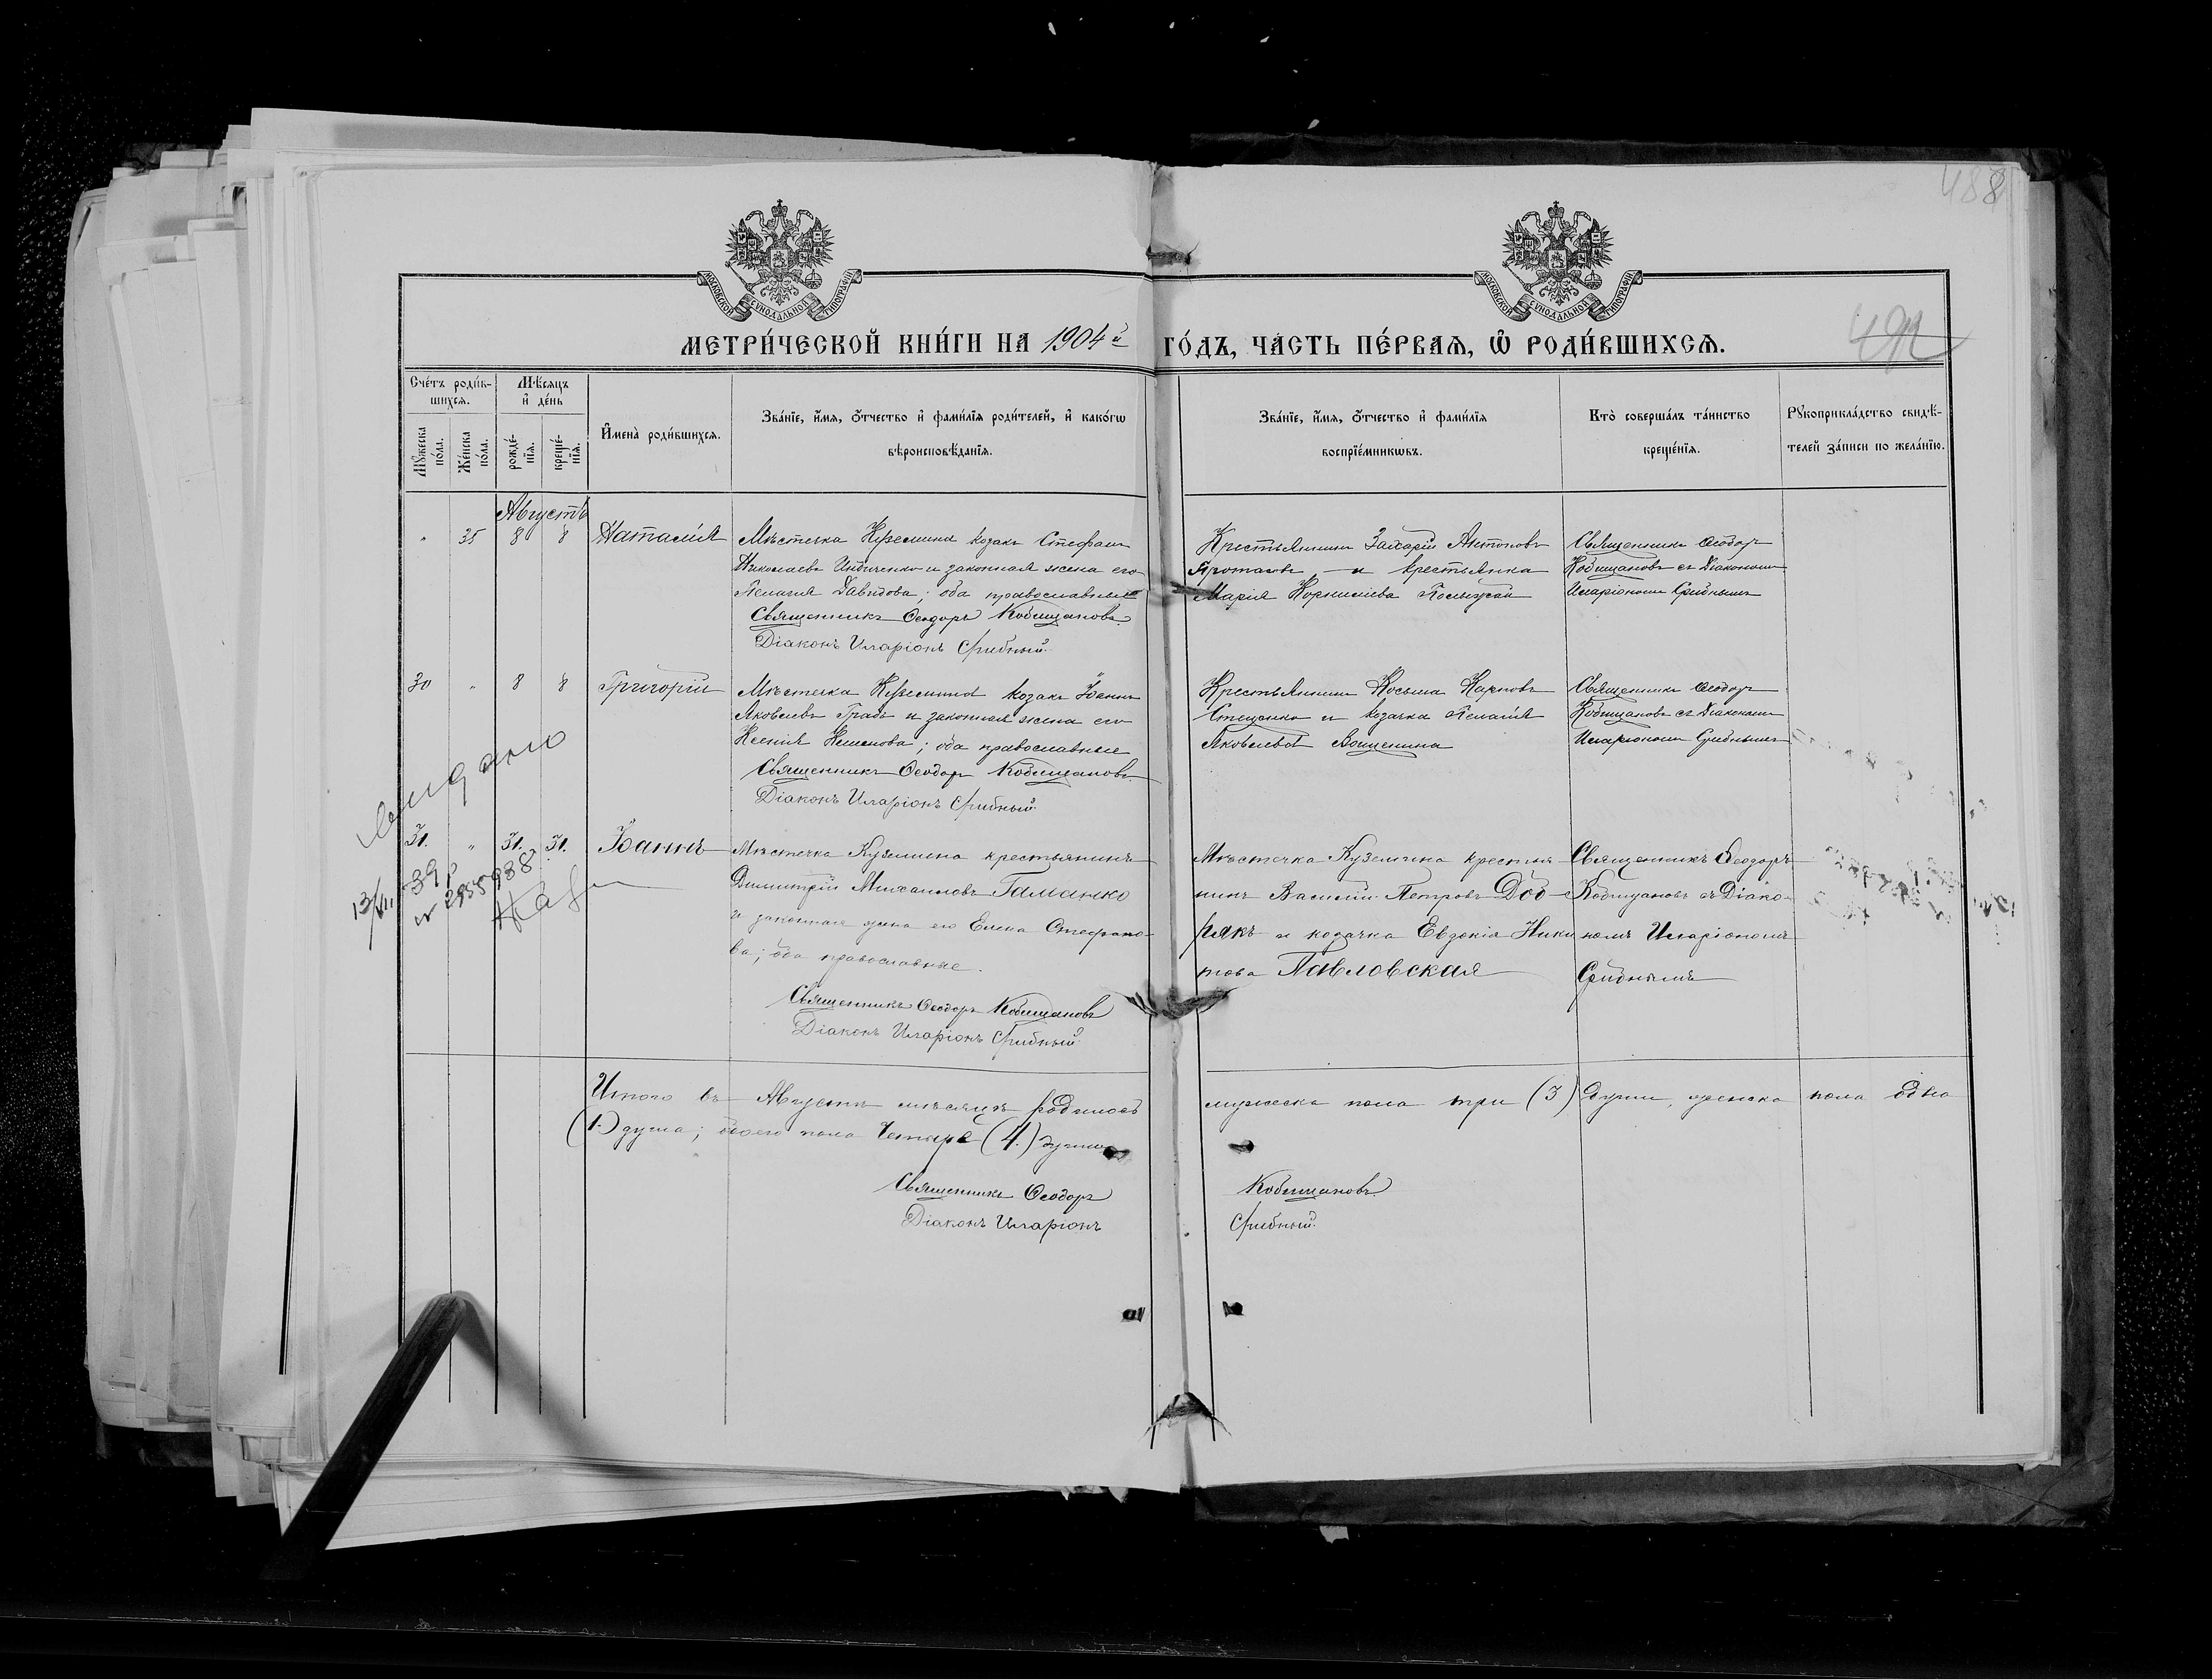 488
492
МОСКОВСКОЙ СѴНОДАЛЬНОЙ ТИПОГРАФІИ
МОСКОВСКОЙ СѴНОДАЛЬНОЙ ТИПОГРАФІИ
МЕТРИ́ЧЕСКОЙ КНИ́ГИ НА 1904й ГО́ДЪ, ЧА́СТЬ ПЕ́РВАѦ, Ѡ РОДИ́ВШИХСѦ.
Сче́тъ роди́в-
шихсѧ.
Мѣ́сѧцъ
и҆ де́нь
Мꙋ́жеска по́ла.
Же́нска по́ла.
рожде́-
нїѧ.
креще́-
нїѧ.
И҆мена̀ роди́вшихсѧ.
Зва́нїе, и҆́мѧ, ѻ҆́тчество и҆ фами́лїѧ роди́телей, и҆ како́гѡ
вѣроисповѣ́данїѧ.
Зва́нїе, и҆́мѧ, ѻ҆́тчество и҆ фами́лїѧ
воспрїе́мникѡвъ.
Кто̀ соверша́лъ та́инство
креще́нїѧ.
Рꙋкоприкла́дство свидѣ́-
телей за́писи по жела́нїю.
Августъ
" 35 8 8 Наталія
Мѣстечка Куземина козакъ Стефанъ
Николаевъ и законная жена его
Пелагія Давидова; оба православные
Священникъ Ѳеодоръ Кобищановъ
Діаконъ Иларіонъ Срибный
Крестьянинъ Захарій Антоновъ
и крестьянка
Марія Корниліева
Священникъ Ѳеодоръ
Кобищановъ съ Діакономъ
Иларіономъ Срибнымъ
30 " 8 8 Григорій
Мѣстечка Куземина козакъ Іоаннъ
Яковлевъ Градъ и законная жена его
Ксенія; оба православные
Священникъ Ѳеодоръ Кобищановъ
Діаконъ Иларіонъ Срибный
Крестьянинъ Косьма Карповъ
Стеценко и козачка Пелагія
Яковлева
Священникъ Ѳеодоръ
Кобищановъ съ Діакономъ
Иларіономъ Срибнымъ
выдано
31. " 31. 31. Іоаннъ
13/VII -39 р
№ 2955938
Мѣстечка Куземина крестьянинъ
Димитрій Михаиловъ Гаманко
и законная жена его Елена Стефано-
ва; оба православные.
Священникъ Ѳеодоръ Кобищановъ
Діаконъ Иларіонъ Срибный
Мѣстечка Куземина крестья-
нинъ Василій Петровъ Доб-
рякъ и козачка Евдокія Ники
това Павловская
Священникъ Ѳеодоръ
Кобищановъ съ Діако-
номъ Иларіономъ
Срибнымъ
Итого въ Августѣ мѣсяцѣ родилось мужеска пола три (3) души, женска пола одна
(1) душа; обоего пола четыре (4.) души
Священникъ Ѳеодоръ Кобищановъ
Діаконъ Иларіонъ Срибный